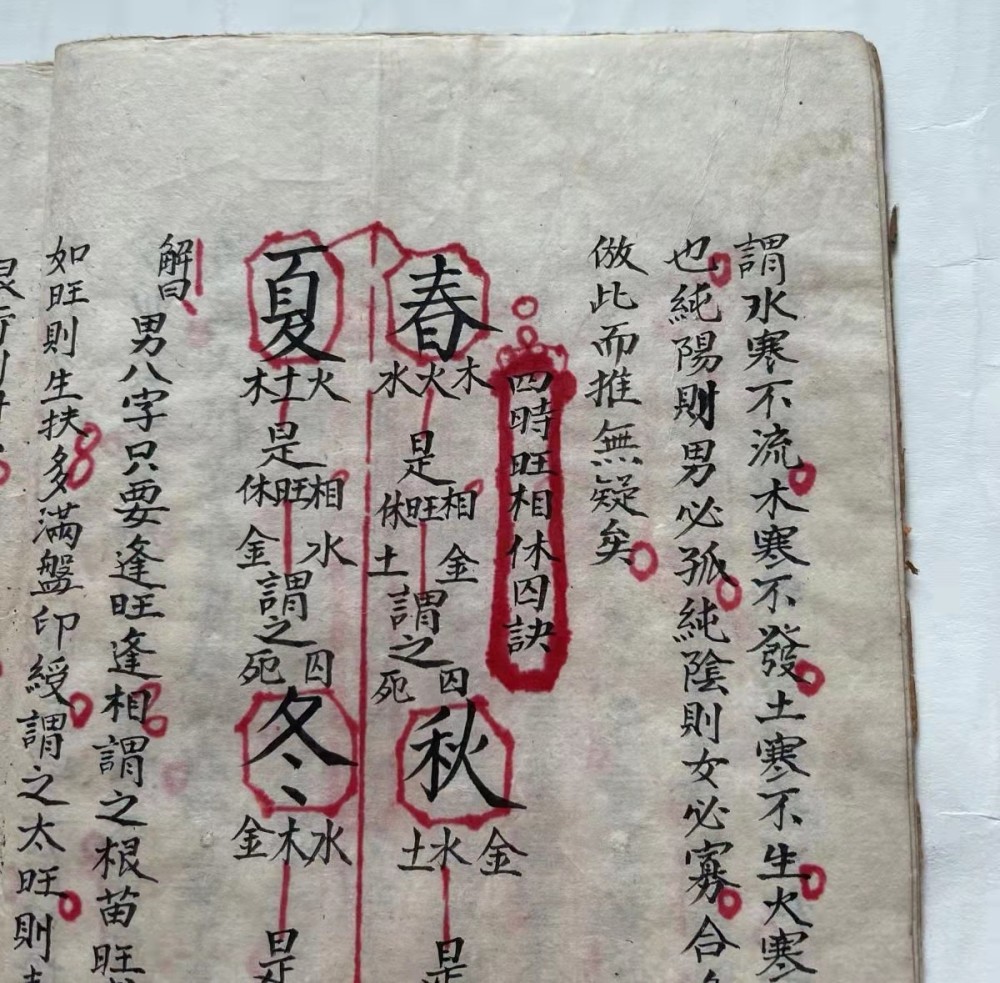 謂水寒不流木寒不發土寒不生火寒
也純陽則男必孤純陰則女必寡合
倣此而推無疑矣
四時旺相休囚訣
春
木火水
是
相旺休
金土
謂之
囚死
秋
金水土
是
夏
火土木
是
相旺休
水金
謂之
囚死
冬
水木金
是
解曰
男八字只要逢旺逢相謂之根苗旺
如旺則生扶多滿盤印綬謂之太旺則